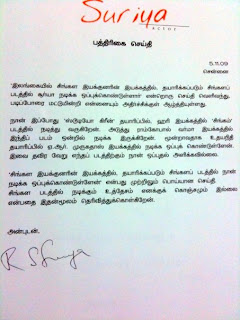 Suriya
ACTOR
பத்திரிகை செய்தி
5.11.09
சென்னை
'இலங்கையில் சிங்கள இயக்குனரின் இயக்கத்தில், தயாரிக்கப்படும் சிங்களப்
படத்தில் சூர்யா நடிக்க ஒப்புக்கொண்டுள்ளார்' என்றொரு செய்தி வெளிவந்து,
படிப்போரை மட்டுமின்றி என்னையும் அதிர்ச்சிக்குள் ஆழ்த்தியுள்ளது.
நான் இப்போது 'ஸ்டுடியோ கிரீன்' தயாரிப்பில், ஹரி இயக்கத்தில் 'சிங்கம்'
படத்தில் நடித்து வருகிறேன். அடுத்து ராம்கோபால் வர்மா இயக்கத்தில்
இந்திப் படம் ஒன்றில் நடிக்க இருக்கிறேன். மூன்றாவதாக உதயநிதி
தயாரிப்பில் ஏ.ஆர். முருகதாஸ் இயக்கத்தில் நடிக்க ஒப்புக் கொண்டுள்ளேன்.
இவை தவிர வேறு எந்தப் படத்திற்கும் நான் ஒப்புதல் அளிக்கவில்லை.
'சிங்கள இயக்குனரின் இயக்கத்தில், தயாரிக்கப்படும் சிங்களப் படத்தில் நான்
நடிக்க ஒப்புக்கொண்டுள்ளேன்' என்பது முற்றிலும் பொய்யான செய்தி.
சிங்கள படத்தில் நடிக்கும் உத்தேசம் எனக்குக் கொஞ்சமும் இல்லை
என்பதை இதன்மூலம் தெரிவித்துக்கொள்கிறேன்.
அன்புடன்,